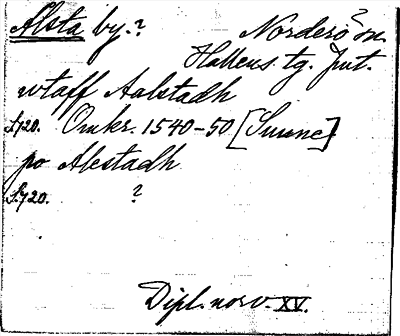 Alsta by.? Norderö? sn
Hallens tg. Jmt.
vtaff Aalstadh
S.720. Omkr. 1540-50 [Sunne]
po Alestadh
S.720. ?
Dipl. norv. XV.